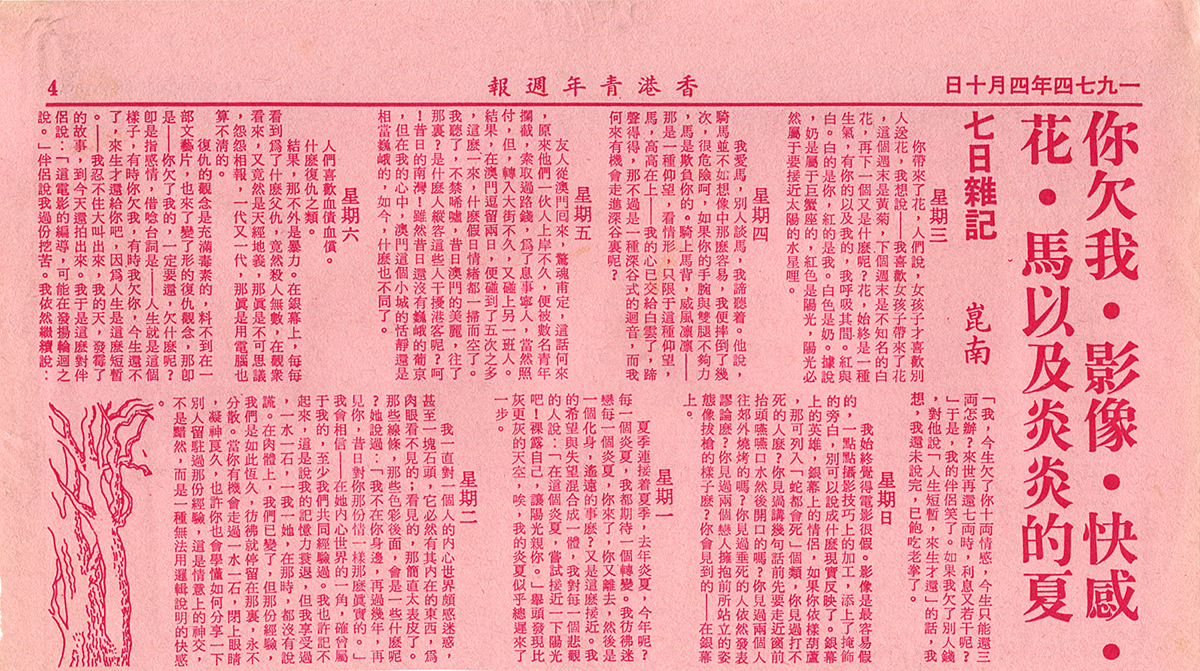 一九七四年四月十日
香港青年週報
4
你欠我・影像・快感・
花・馬以及炎炎的夏
七日雜記　崑南
星期三
你帶來了花，人們說，女孩子才喜歡別
人送花，我想說——我喜歡女孩子帶來了花
，這個週末是黃菊，下個週末是不知名的白
花，再下一個又是什麼呢？花，始終是一種
生氣，有你的以及我的，我呼吸其間。紅與
白。白的是你，紅的是我。白色是奶。據說
，奶是屬于巨蟹座的，紅色是陽光，陽光必
然屬于要接近太陽的水星哩。
星期四
我愛馬，別人談馬，我諦聽着。他說，
騎馬並不如想像中那麼容易，我便摔倒了幾
次，很危險呵，如果你的手腕與雙腿不夠力
，馬是欺負你的。騎上馬背，威風凛凛——
那是一種仰望，看情形，只限于這種仰望，
馬，高高在上——我的心已交給白雲了，蹄
聲得得，那不過是一種深谷式的迴音，而我
何來有機會走進深谷裏呢？
星期五
友人從澳門回來，驚魂甫定，這話何來
，原來他們一伙人上岸不久，便被數名青年
攔截，索取過路錢，爲了息事寧人，當然照
付，但，轉入大街不久，又碰上另一班人。
結果，在澳門逗留兩日，便碰到了五次之多
，這麼一來，什麼假日情緒都一掃而空了。
我聽了，不禁唏噓，昔日澳門的美麗，往了
那裏？是什麼人縱容這些人干擾港客呢？呵
！昔日的南灣！雖然昔日還沒有巍峨的葡京
，但在我的心中，澳門這個小城的恬靜還是
相當巍峨的，如今，什麼也不同了。
星期六
人們喜歡血債血償。
什麼復仇之類。
結果，那不外是暴力。在銀幕上，每每
看到爲了什麼父仇，竟然殺人無數，在觀衆
看來，又竟然是天經地義，那眞是不可思議
，怨怨相報，一代又一代，那眞是用電腦也
算不清的。
復仇的觀念是充滿毒素的，料不到在一
部文藝片，也來了變了形的復仇觀念，那卽
是——你欠了我的，一定要還，欠什麼呢？
卽是指感情，借唸台詞是——人生就是這個
樣子，有時你欠我，有時我欠你，今生還不
了，來生才還給你吧，因爲人生是這麼短暫
。——我忍不住大叫出來，我的天，發霉了
的故事，到今天還拍出來。我于是這麼對伴
侶說：「這電影的編導，可能在發揚輪迴之
說。」伴侶說我過份挖苦。我依然繼續說：
「我，今生欠了你十両情感，今生只能還三
両怎辦？來世再還七両，利息又若干呢？
」于是，我的伴侶笑了。如果我欠了別人錢
，對他說「人生短暫，來生才還」的話，我
想，我還未說完，已飽吃老拳了。
星期日
我始終覺得電影很假。影像是最容易假
的，一點點攝影技巧上的加工，添上了掩飾
的旁白，別可以說成什麼現實反映了。銀幕
上的英雄，銀幕上的情侶，如果你依樣葫蘆
，那可列入「蛇都會死」個類，你見過打不
死的人麼？你見過講幾句話前先要走近窗前
抬頭嚥嚥口水然後開口的嗎？你見過兩個人
往郊外燒烤的嗎？你見過垂死的人依然發表
謬論麼？你見過兩個戀人擁抱前所站立的姿
態像拔槍的樣子麼？你會見到的——在銀幕
上。
星期一
夏季連接着夏季，去年炎夏，今年呢？
每一個炎夏，我都期待一個轉變。我彷彿迷
戀每一個炎夏，你來了，你又離去，然後是
一個化身，遙遠的事麼？又是這麼接近。我
的希望與失望混合成一體，我對近一個悲觀
的人說：「在這個炎夏，嘗試接近一下陽光
吧！裸露自己，讓陽光親你。」舉頭發現比
灰更灰的天空，唉，我的炎夏似乎總遲來了
一步。
星期二
我一直對一個人的內心世界頗感迷惑，
甚至一塊石頭，它必然有其內在的東西，爲
肉眼看不見的；看見的，那簡直太表皮了。
那些線條，那些色彩後面，會是一些什麼呢
？她說過：「我不在你身邊，再過幾年，再
見你，昔日對你那份情一樣那麼眞實的。」
我會相信——在她內心世界的一角，確曾屬
于我的，至少我們共同經驗過。我也許記不
起來，這是說我的記憶力衰退，但我享受過
，一水一石，一我一她，在那時，都沒有說
謊。在肉體上，我們已變了，但那份經驗，
我們是如此恆久，彷彿就停留在那裏，永不
分散。當你有機會走過一水一石，閉上眼睛
，凝神良久，也許你也會學懂如何分享一下
別人留駐過那份經驗，這是情意上的神交，
不是黯然，而是一種無法用邏輯說明的快感
。